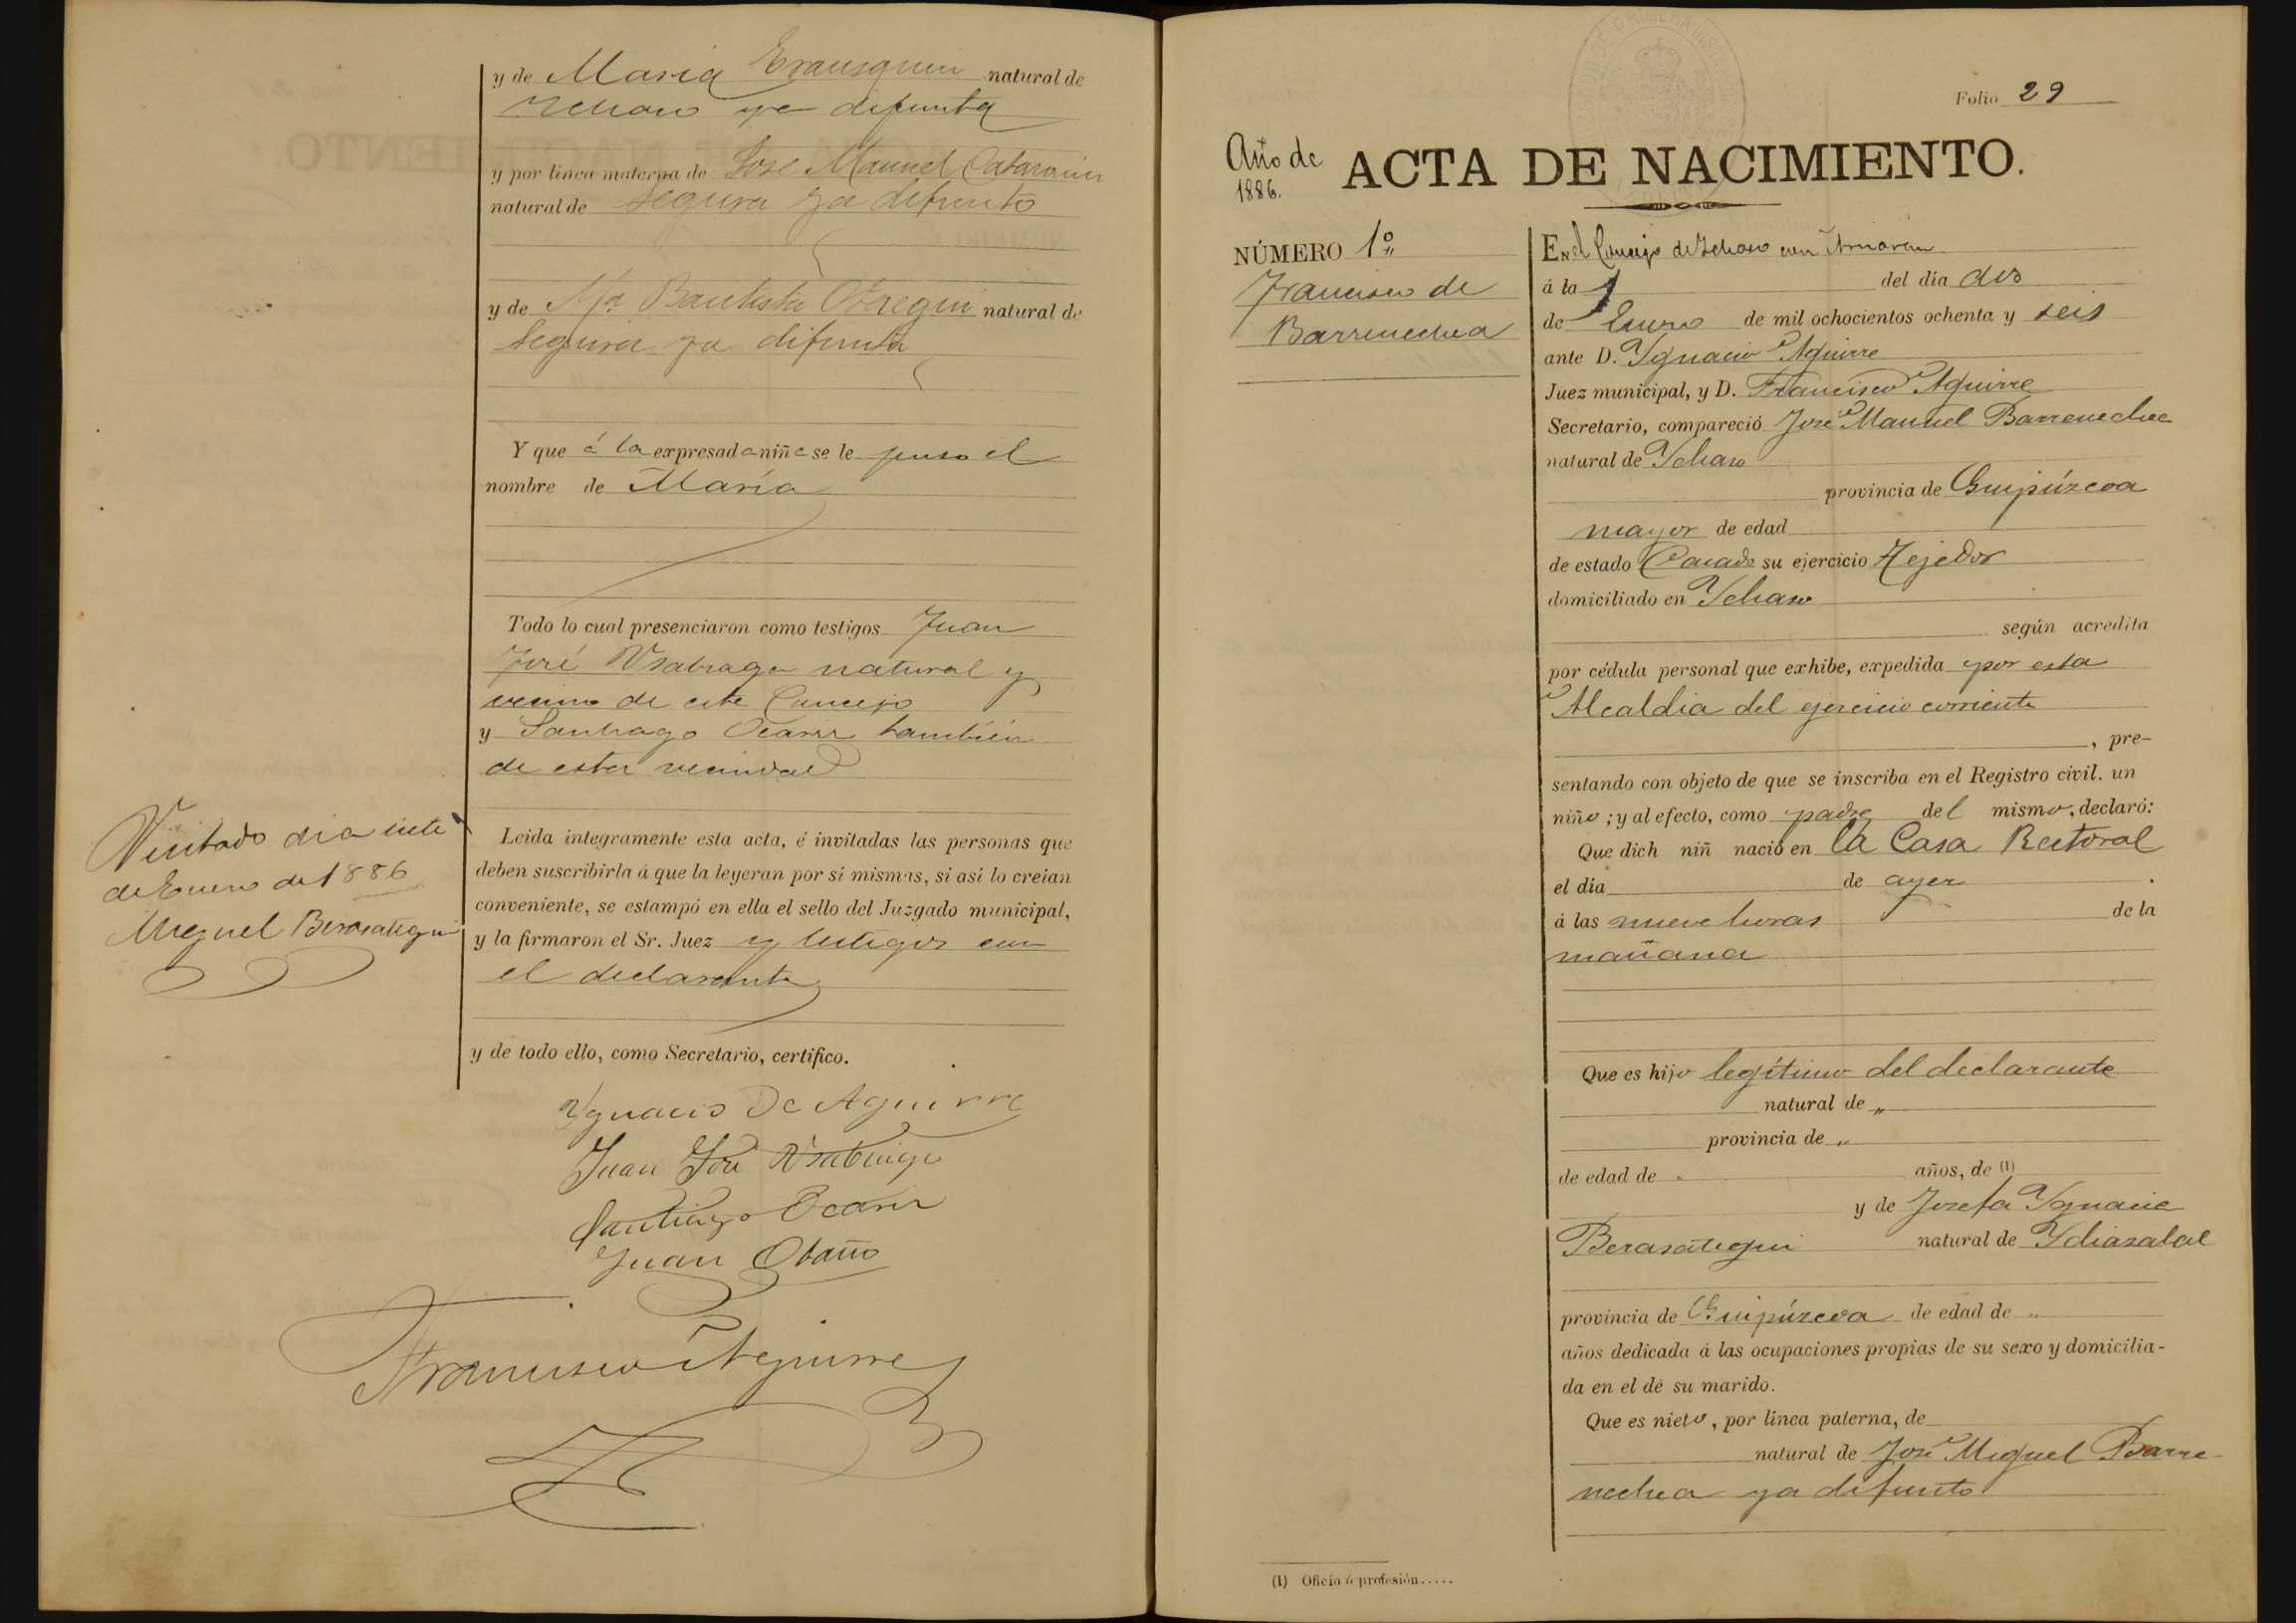 y de Maria Erausquin natural de
Ychaso ya difunta
y por línea materna de José Manuel Catarain
natural de Segura ya difunto
y de Mª Bautista Otaegui natural de
Segura ya difunta
Y que á la expresada niña se le puso el
nombre de María
Todo lo cual presenciaron como testigos Juan
José Usabiaga natural y
vecino de este Concejo
y Santiago Ocariz también
de esta vecindad
Visitado dia siete
de Enero de 1886
Miguel Berasategui
Leida íntegramente esta acta, é invitadas las personas que
deben suscribirla á que la leyeran por sí mismas, si así lo creían
conveniente, se estampó en ella el sello del Juzgado municipal,
y la firmaron el Sr. Juez y testigos con
el declarante
y de todo ello, como Secretario, certifico.
Ygnacio De Aguirre
Juan José Usabiaga
Santiago Ocariz
Juan Otaño
Francisco Aguirre
Folio 29
Año de
1886.
ACTA DE NACIMIENTO.
NÚMERO 1º
Francisco de
Barrenechea
En el Concejo de Ychaso con Arriaran
á la 1 del día dos
de Enero de mil ochocientos ochenta y seis
ante D. Ygnacio Aguirre
Juez municipal, y D. Francisco Aguirre
Secretario, compareció José Manuel Barrenechea
natural de Ychaso
provincia de Guipúzcoa
mayor de edad
de estado Casado su ejercicio Tejedor
domiciliado en Ychaso
según acredita
por cédula personal que exhibe, expedida por esta
Alcaldia del ejercicio corriente
, pre-
sentando con objeto de que se inscriba en el Registro civil, un
niño; y al efecto, como padre del mismo, declaró:
Que dich niñ nació en la Casa Rectoral
el día de ayer
á las nueve horas de la
mañana
Que es hijo legítimo del declarante
natural de „
provincia de „
de edad de „ años, de (1)
y de Josefa Ygnacia
Berasategui natural de Ydiazabal
provincia de Guipúzcoa de edad de „
años dedicada á las ocupaciones propias de su sexo y domicilia-
da en el de su marido.
Que es nieto, por línea paterna, de
natural de José Miguel Barre
nechea ya difunto
(1) Oficio ó profesión.....